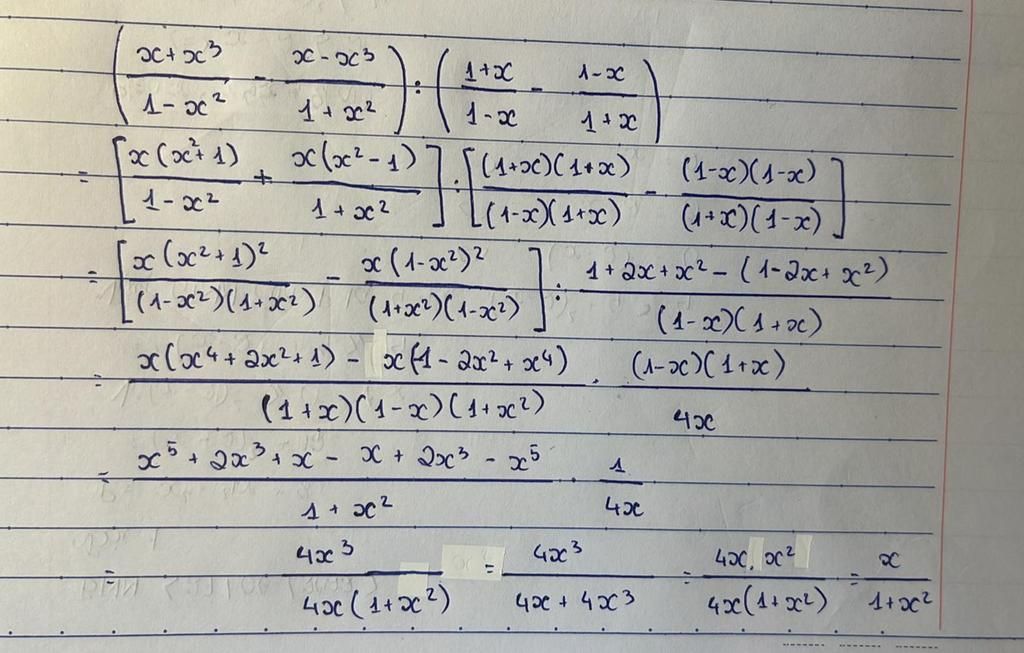 ( (x+x³)/(1-x²) - (x-x³)/(1+x²) ) : ( (1+x)/(1-x) - (1-x)/(1+x) )
= [ x(x²+1)/(1-x²) + x(x²-1)/(1+x²) ] : [ (1+x)(1+x)/((1-x)(1+x)) - (1-x)(1-x)/((1+x)(1-x)) ]
= [ x(x²+1)²/((1-x²)(1+x²)) - x(1-x²)²/((1+x²)(1-x²)) ] : (1+2x+x²-(1-2x+x²))/((1-x)(1+x))
= (x(x⁴+2x²+1) - x(1-2x²+x⁴))/((1+x)(1-x)(1+x²)) . ((1-x)(1+x))/(4x)
= (x⁵+2x³+x-x+2x³-x⁵)/(1+x²) . 1/(4x)
= 4x³/(4x(1+x²)) = 4x³/(4x+4x³) = (4x.x²)/(4x(1+x²)) = x/(1+x²)